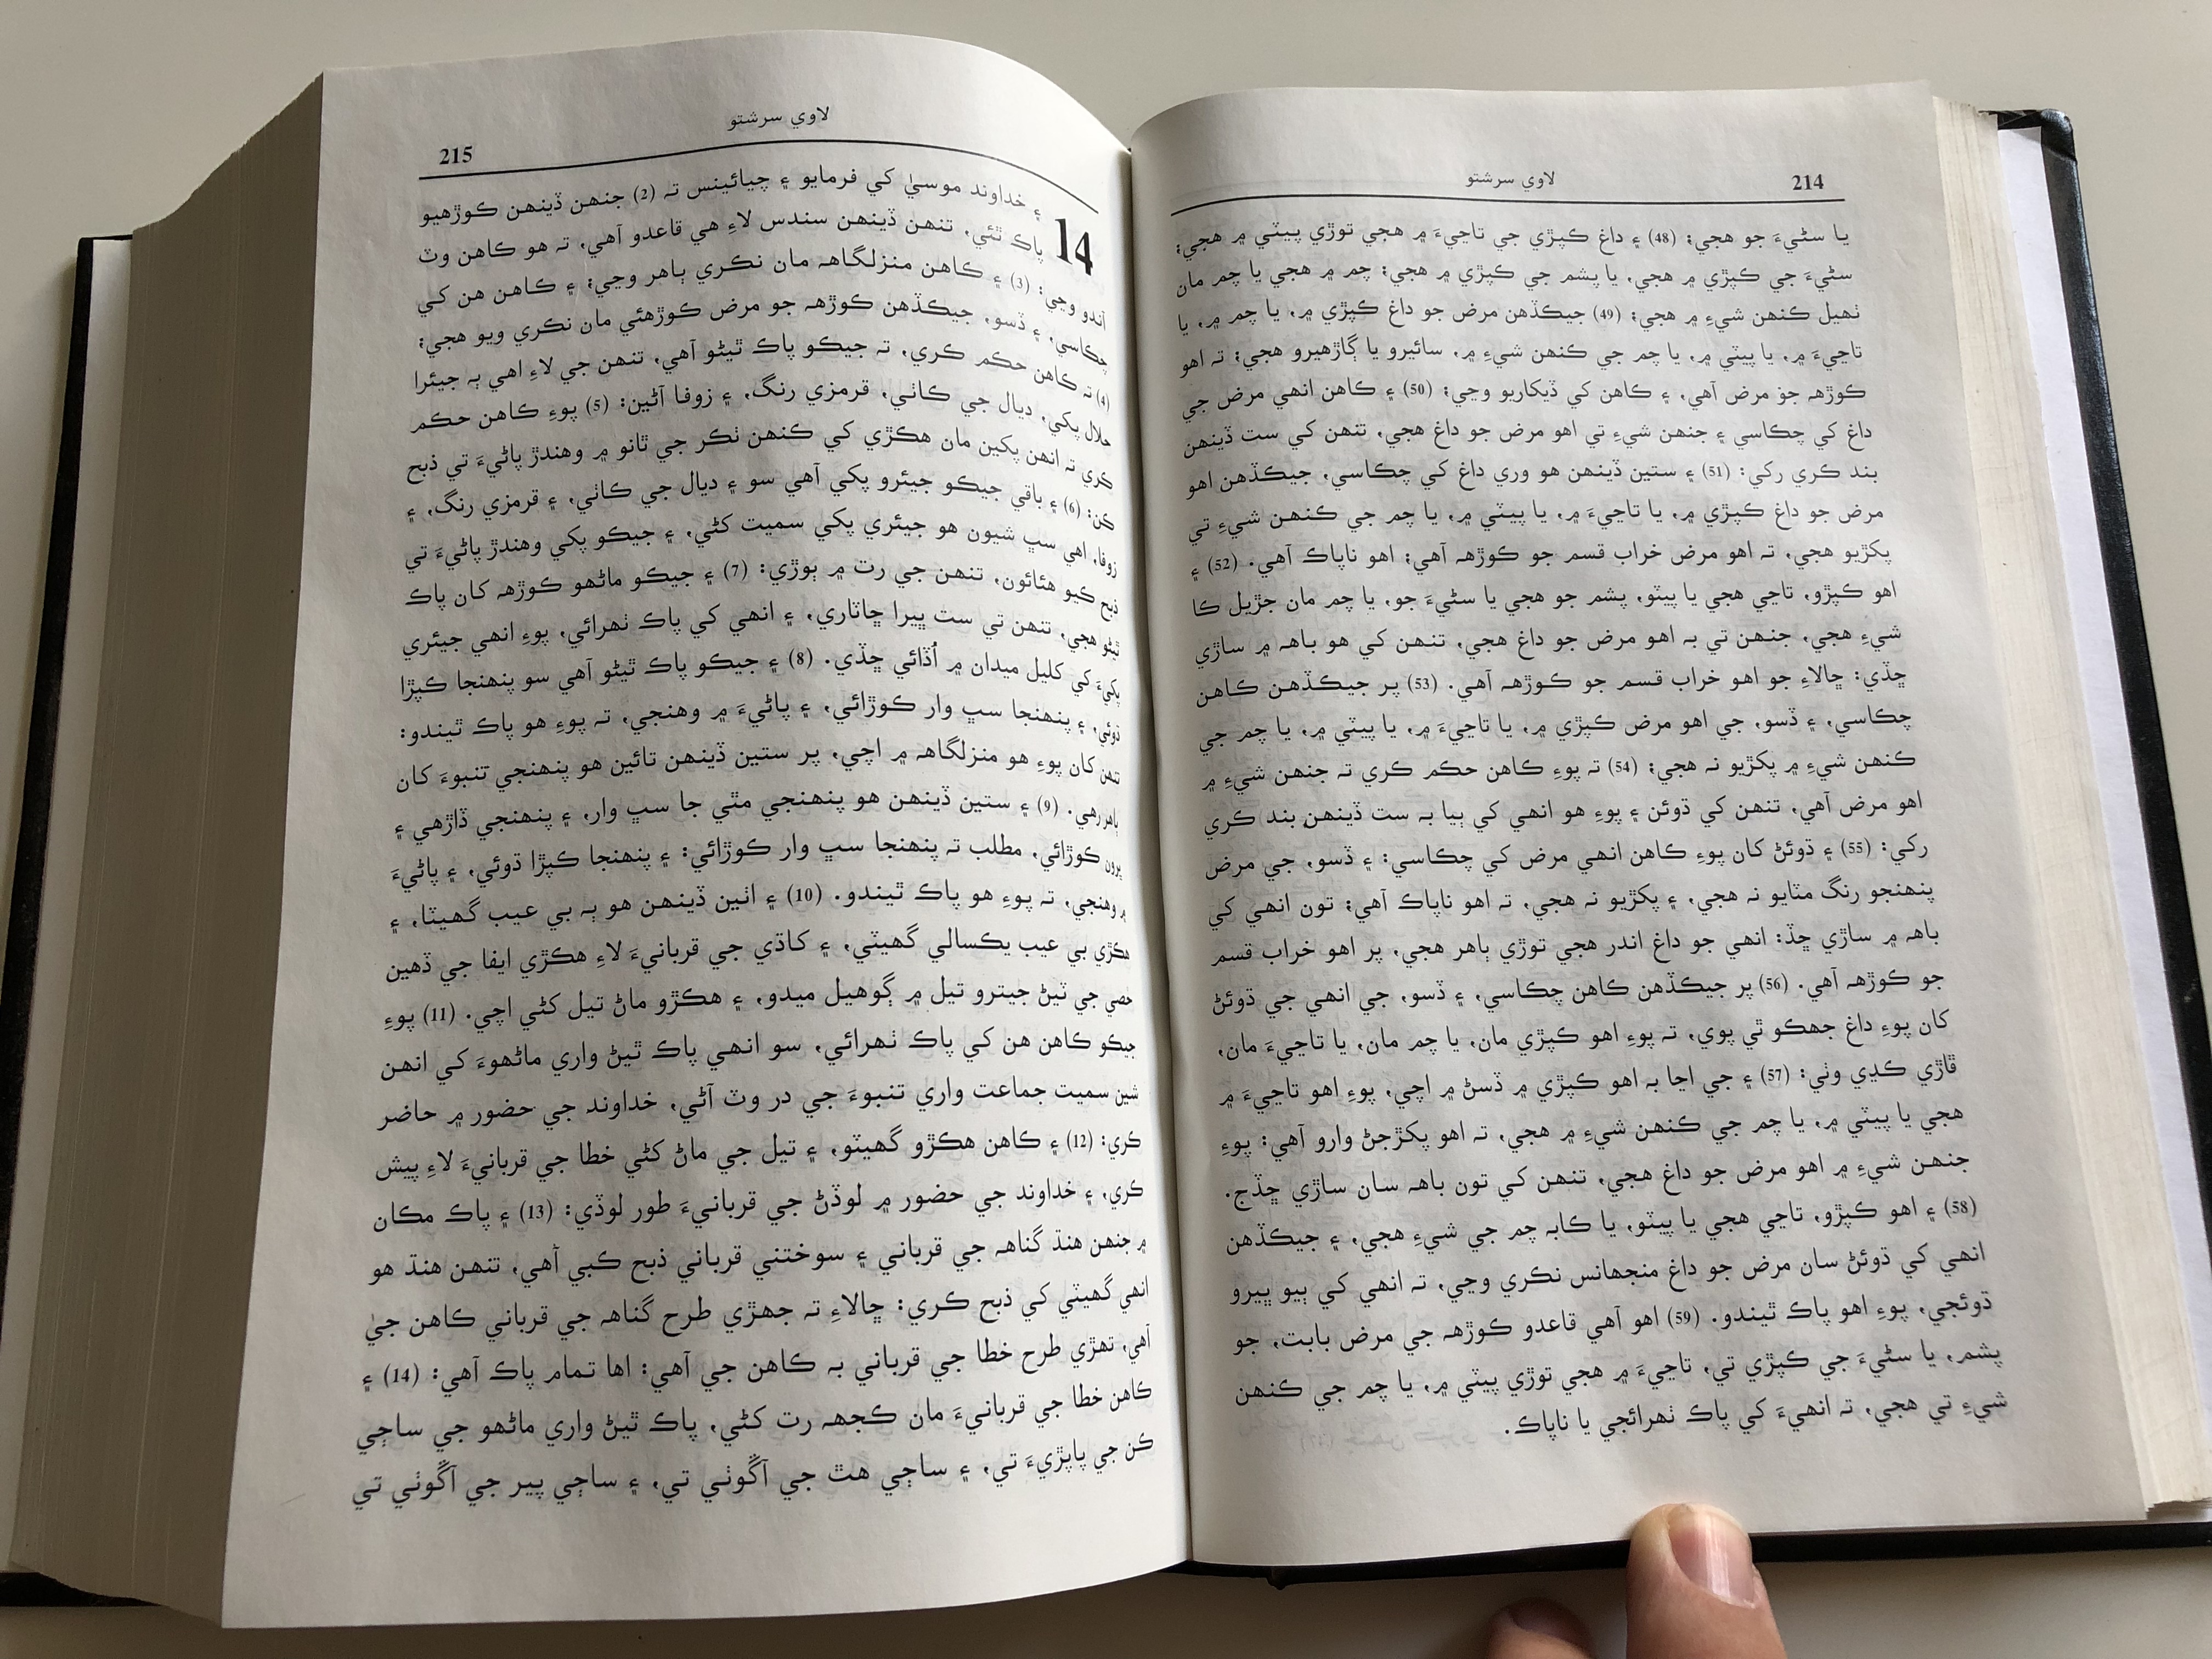 لاوي سرشتو
214
يا سڻيءَ جو هجي؛ (48) ۽ داغ ڪپڙي جي تاڃيءَ ۾ هجي توڙي پيٽي ۾ هجي؛
سڻيءَ جي ڪپڙي ۾ هجي، يا پشم جي ڪپڙي ۾ هجي؛ چم ۾ هجي يا چم مان
ٺهيل ڪنهن شيءِ ۾ هجي؛ (49) جيڪڏهن مرض جو داغ ڪپڙي ۾، يا چم ۾، يا
تاڃيءَ ۾، يا پيٽي ۾، يا چم جي ڪنهن شيءِ ۾، سائيرو يا ڳاڙهيرو هجي؛ تہ اهو
ڪوڙهہ جو مرض آهي، ۽ ڪاهن کي ڏيکاريو وڃي؛ (50) ۽ ڪاهن انهي مرض جي
داغ کي چڪاسي ۽ جنهن شيءِ تي اهو مرض جو داغ هجي، تنهن کي ست ڏينهن
بند ڪري رکي: (51) ۽ ستين ڏينهن هو وري داغ کي چڪاسي، جيڪڏهن اهو
مرض جو داغ ڪپڙي ۾، يا تاڃيءَ ۾، يا پيٽي ۾، يا چم جي ڪنهن شيءِ تي
پکڙيو هجي، تہ اهو مرض خراب قسم جو ڪوڙهہ آهي؛ اهو ناپاڪ آهي. (52) ۽
اهو ڪپڙو، تاڃي هجي يا پيٽو، پشم جو هجي يا سڻيءَ جو، يا چم مان جڙيل ڪا
شيءِ هجي، جنهن تي بہ اهو مرض جو داغ هجي، تنهن کي هو باهہ ۾ ساڙي
ڇڏي: ڇالاءِ جو اهو خراب قسم جو ڪوڙهہ آهي. (53) پر جيڪڏهن ڪاهن
چڪاسي، ۽ ڏسو، جي اهو مرض ڪپڙي ۾، يا تاڃيءَ ۾، يا پيٽي ۾، يا چم جي
ڪنهن شيءِ ۾ پکڙيو نہ هجي؛ (54) تہ پوءِ ڪاهن حڪم ڪري تہ جنهن شيءِ ۾
اهو مرض آهي، تنهن کي ڌوئن ۽ پوءِ هو انهي کي ٻيا بہ ست ڏينهن بند ڪري
رکي: (55) ۽ ڌوئڻ کان پوءِ ڪاهن انهي مرض کي چڪاسي: ۽ ڏسو، جي مرض
پنهنجو رنگ مٽايو نہ هجي، ۽ پکڙيو نہ هجي، تہ اهو ناپاڪ آهي؛ تون انهي کي
باهہ ۾ ساڙي ڇڏ: انهي جو داغ اندر هجي توڙي ٻاهر هجي، پر اهو خراب قسم
جو ڪوڙهہ آهي. (56) پر جيڪڏهن ڪاهن چڪاسي، ۽ ڏسو، جي انهي جي ڌوئڻ
کان پوءِ داغ جهڪو ٿي پوي، تہ پوءِ اهو ڪپڙي مان، يا چم مان، يا تاڃيءَ مان،
ڦاڙي ڪڍي وٺي: (57) ۽ جي اڃا بہ اهو ڪپڙي ۾ ڏسڻ ۾ اچي، پوءِ اهو تاڃيءَ ۾
هجي يا پيٽي ۾، يا چم جي ڪنهن شيءِ ۾ هجي، تہ اهو پکڙجڻ وارو آهي: پوءِ
جنهن شيءِ ۾ اهو مرض جو داغ هجي، تنهن کي تون باهہ سان ساڙي ڇڏج.
(58) ۽ اهو ڪپڙو، تاڃي هجي يا پيٽو، يا ڪابہ چم جي شيءِ هجي، ۽ جيڪڏهن
انهي کي ڌوئڻ سان مرض جو داغ منجهانئس نڪري وڃي، تہ انهي کي ٻيو ڀيرو
ڌوئجي، پوءِ اهو پاڪ ٿيندو. (59) اهو آهي قاعدو ڪوڙهہ جي مرض بابت، جو
پشم، يا سڻيءَ جي ڪپڙي تي، تاڃيءَ ۾ هجي توڙي پيٽي ۾، يا چم جي ڪنهن
شيءِ تي هجي، تہ انهيءَ کي پاڪ ٺهرائجي يا ناپاڪ.
لاوي سرشتو
215
14 ۽ خداوند موسيٰ کي فرمايو ۽ چيائينس تہ (2) جنهن ڏينهن ڪوڙهيو
پاڪ ٿئي، تنهن ڏينهن سندس لاءِ هي قاعدو آهي، تہ هو ڪاهن وٽ
آندو وڃي: (3) ۽ ڪاهن منزلگاهہ مان نڪري ٻاهر وڃي؛ ۽ ڪاهن هن کي
چڪاسي، ۽ ڏسو، جيڪڏهن ڪوڙهہ جو مرض ڪوڙهئي مان نڪري ويو هجي؛
(4) تہ ڪاهن حڪم ڪري، تہ جيڪو پاڪ ٿيڻو آهي، تنهن جي لاءِ اهي ٻہ جيئرا
حلال پکي، ديال جي ڪاٺي، قرمزي رنگ، ۽ زوفا آڻين: (5) پوءِ ڪاهن حڪم
ڪري تہ انهن پکين مان هڪڙي کي ڪنهن ٺڪر جي ٿانو ۾ وهندڙ پاڻيءَ تي ذبح
ڪن: (6) ۽ باقي جيڪو جيئرو پکي آهي سو ۽ ديال جي ڪاٺي، ۽ قرمزي رنگ، ۽
زوفا، اهي سڀ شيون هو جيئري پکي سميت کڻي، ۽ جيڪو پکي وهندڙ پاڻيءَ تي
ذبح ڪيو هئائون، تنهن جي رت ۾ ٻوڙي: (7) ۽ جيڪو ماڻهو ڪوڙهہ کان پاڪ
ٿيڻو هجي، تنهن تي ست ڀيرا ڇاٽاري، ۽ انهي کي پاڪ ٺهرائي، پوءِ انهي جيئري
پکيءَ کي کليل ميدان ۾ اُڏائي ڇڏي. (8) ۽ جيڪو پاڪ ٿيڻو آهي سو پنهنجا ڪپڙا
ڌوئي، ۽ پنهنجا سڀ وار ڪوڙائي، ۽ پاڻيءَ ۾ وهنجي، تہ پوءِ هو پاڪ ٿيندو:
تنهن کان پوءِ هو منزلگاهہ ۾ اچي، پر ستين ڏينهن تائين هو پنهنجي تنبوءَ کان
ٻاهر رهي. (9) ۽ ستين ڏينهن هو پنهنجي مٿي جا سڀ وار، ۽ پنهنجي ڏاڙهي ۽
ڀرون ڪوڙائي، مطلب تہ پنهنجا سڀ وار ڪوڙائي: ۽ پنهنجا ڪپڙا ڌوئي، ۽ پاڻيءَ
۾ وهنجي، تہ پوءِ هو پاڪ ٿيندو. (10) ۽ اٺين ڏينهن هو ٻہ بي عيب گهيٽا، ۽
هڪڙي بي عيب يڪسالي گهيٽي، ۽ کاڌي جي قربانيءَ لاءِ هڪڙي ايفا جي ڏهين
حصي جي ٽيڻ جيترو تيل ۾ ڳوهيل ميدو، ۽ هڪڙو ماڻ تيل کڻي اچي. (11) پوءِ
جيڪو ڪاهن هن کي پاڪ ٺهرائي، سو انهي پاڪ ٿيڻ واري ماڻهوءَ کي انهن
شين سميت جماعت واري تنبوءَ جي در وٽ آڻي، خداوند جي حضور ۾ حاضر
ڪري: (12) ۽ ڪاهن هڪڙو گهيٽو، ۽ تيل جي ماڻ کڻي خطا جي قربانيءَ لاءِ پيش
ڪري، ۽ خداوند جي حضور ۾ لوڏڻ جي قربانيءَ طور لوڏي: (13) ۽ پاڪ مڪان
۾ جنهن هنڌ گناهہ جي قرباني ۽ سوختني قرباني ذبح ڪبي آهي، تنهن هنڌ هو
انهي گهيٽي کي ذبح ڪري: ڇالاءِ تہ جهڙي طرح گناهہ جي قرباني ڪاهن جي
آهي، تهڙي طرح خطا جي قرباني بہ ڪاهن جي آهي: اها تمام پاڪ آهي: (14) ۽
ڪاهن خطا جي قربانيءَ مان ڪجهہ رت کڻي، پاڪ ٿيڻ واري ماڻهو جي ساڄي
ڪن جي پاپڙيءَ تي، ۽ ساڄي هٿ جي آڱوٺي تي، ۽ ساڄي پير جي آڱوٺي تي